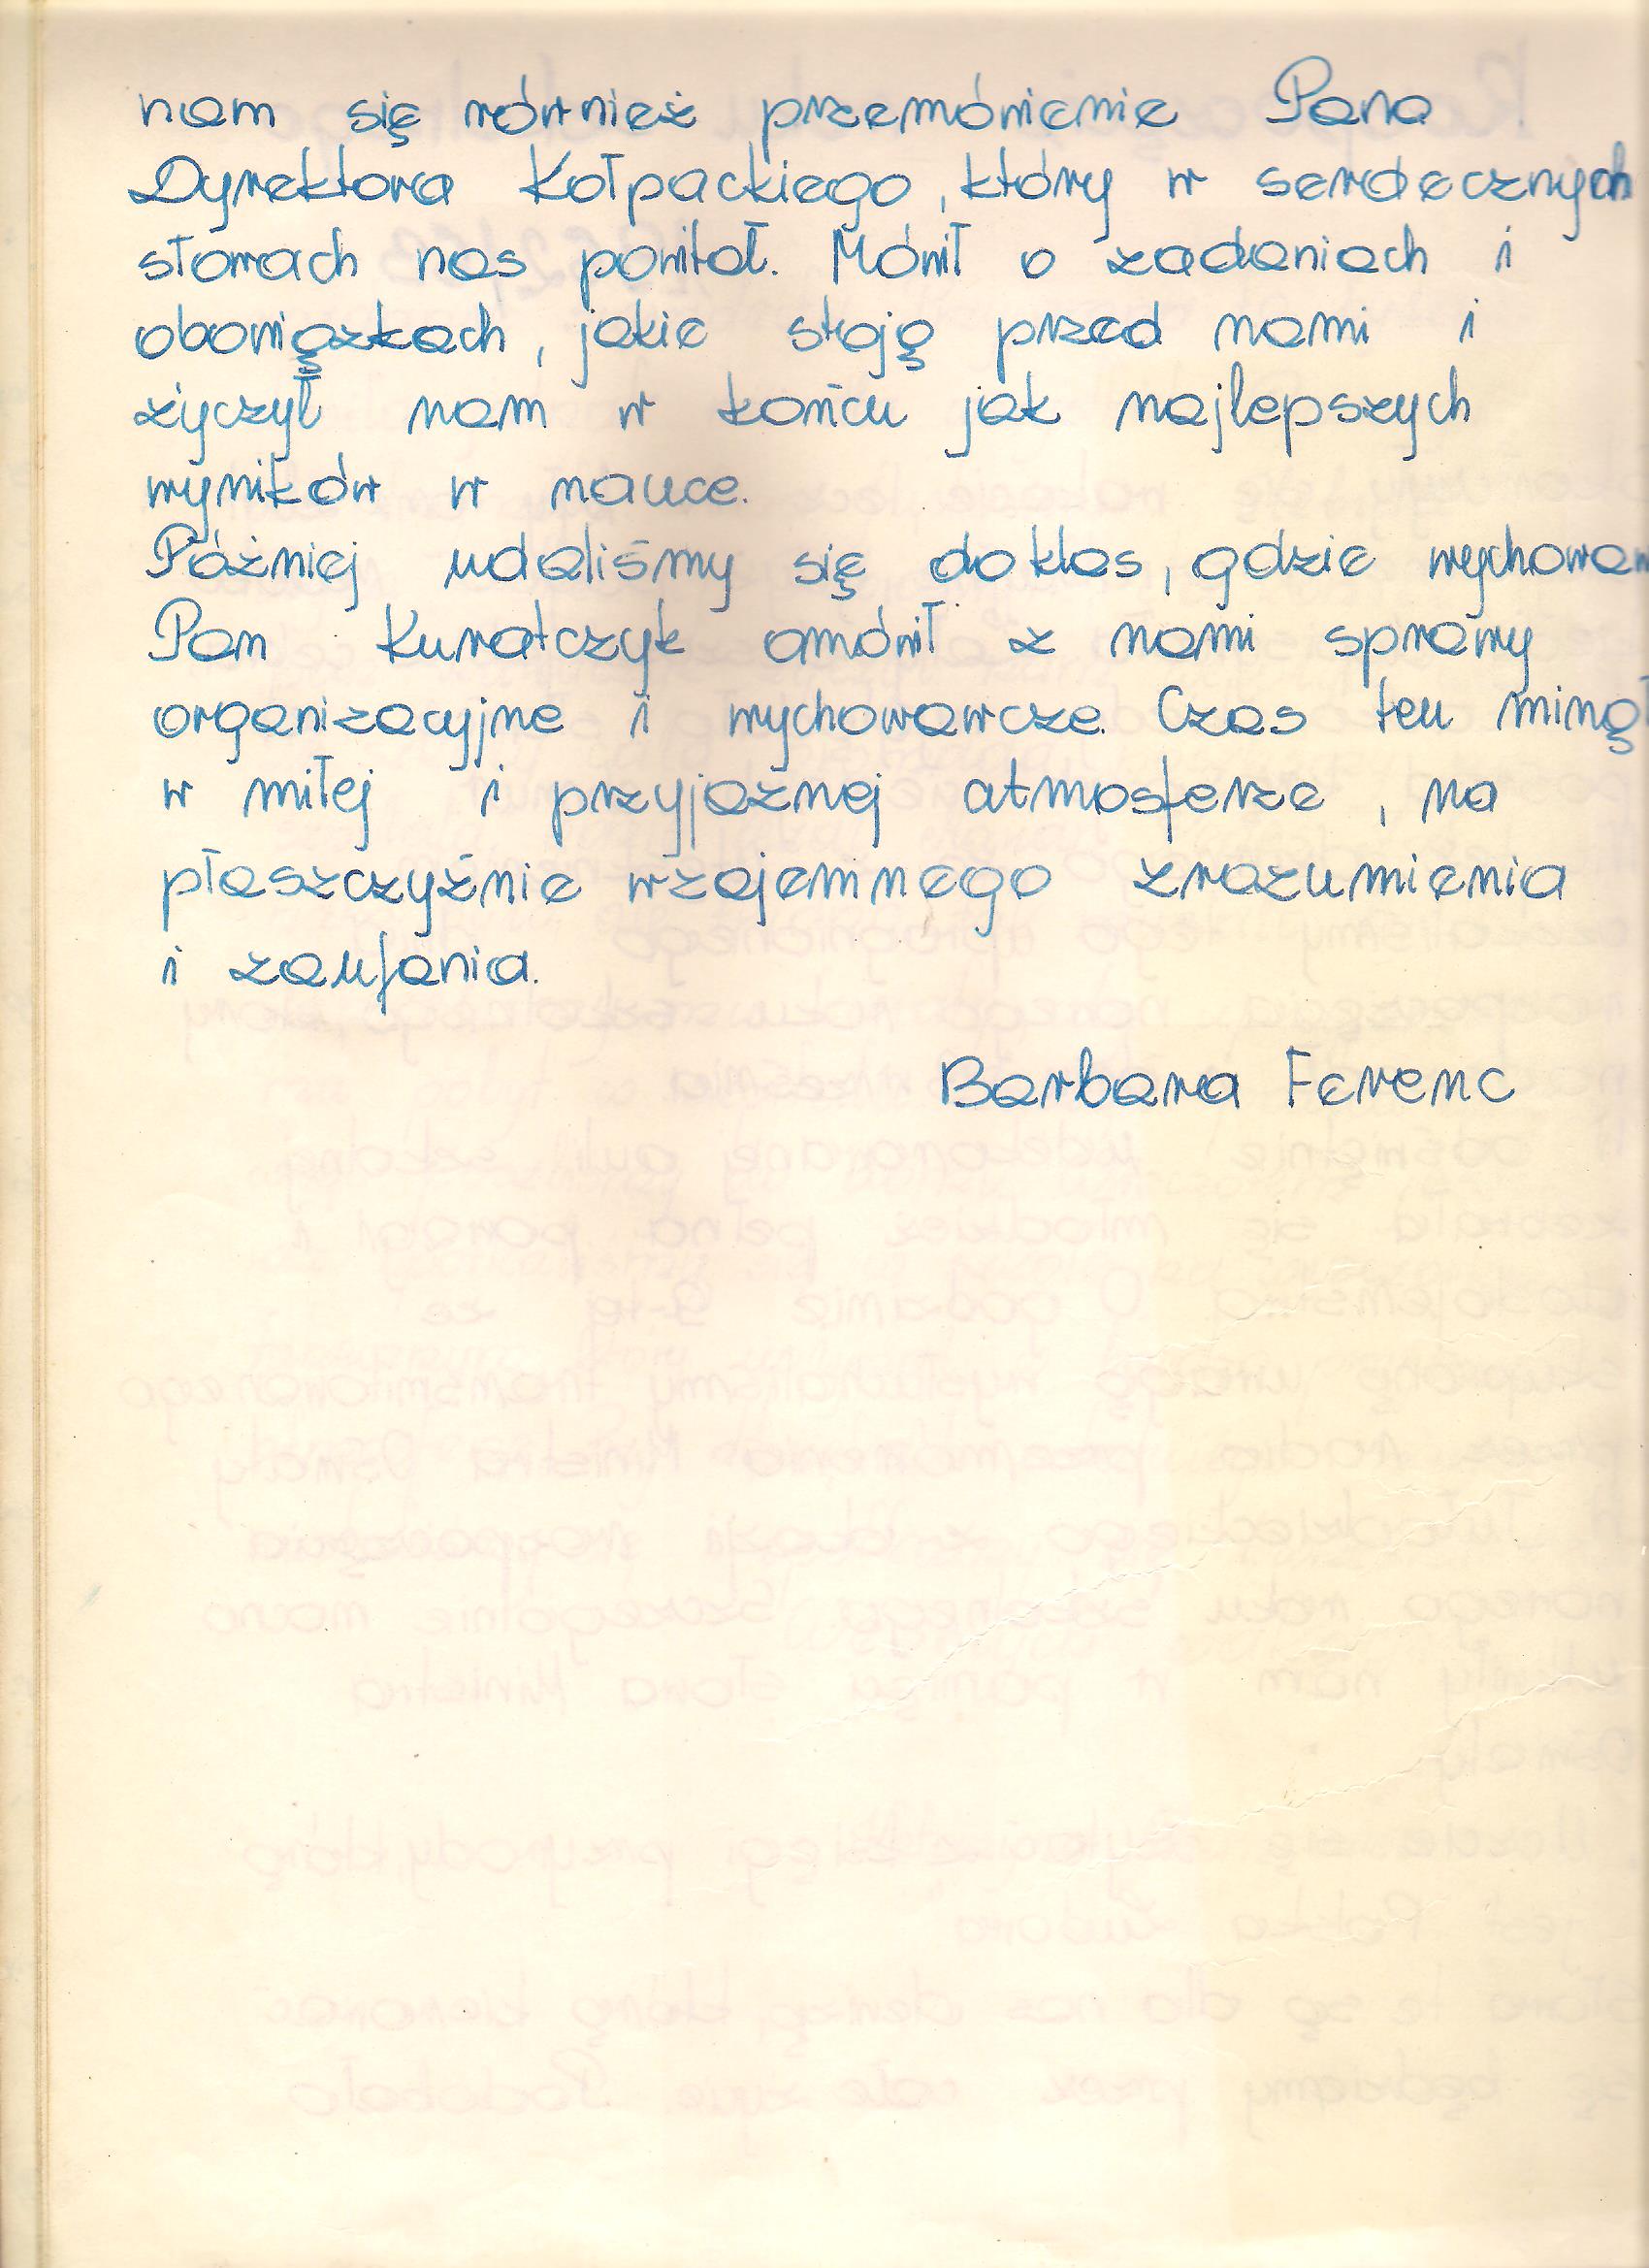 nam się również przemówienie Pana
Dyrektora Kołpackiego, który w serdecznych
słowach nas powitał. Mówił o zadaniach i
obowiązkach, jakie stoją przed nami i
życzył nam w końcu jak najlepszych
wyników w nauce.
Później udaliśmy się do klas, gdzie wychowaw
Pan Kuratczyk omówił z nami sprawy
organizacyjne i wychowawcze. Czas ten minął
w miłej i przyjaznej atmosferze, na
płaszczyźnie wzajemnego zrozumienia
i zaufania.
Barbara Ferenc